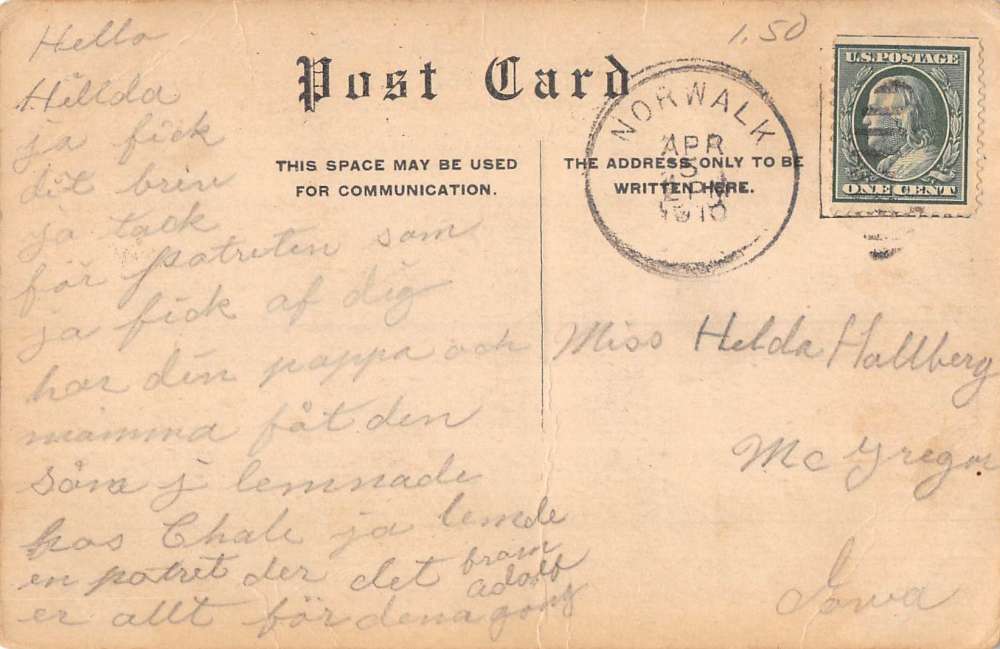 Hello
Hillda
ja fick
dit brev
ja tack
för patreten som
ja fick af dig
har din pappa och
mamma fåt den
som j lemnade
hos Chale ja lemde
en patret der det
er allt för dena gong
from
adolf
1.50
Post Card
THIS SPACE MAY BE USED
FOR COMMUNICATION.
THE ADDRESS ONLY TO BE
WRITTEN HERE.
NORWALK
APR
5
1910
U.S.POSTAGE
ONE CENT
Miss Helda Hallberg
McGregor
Iowa